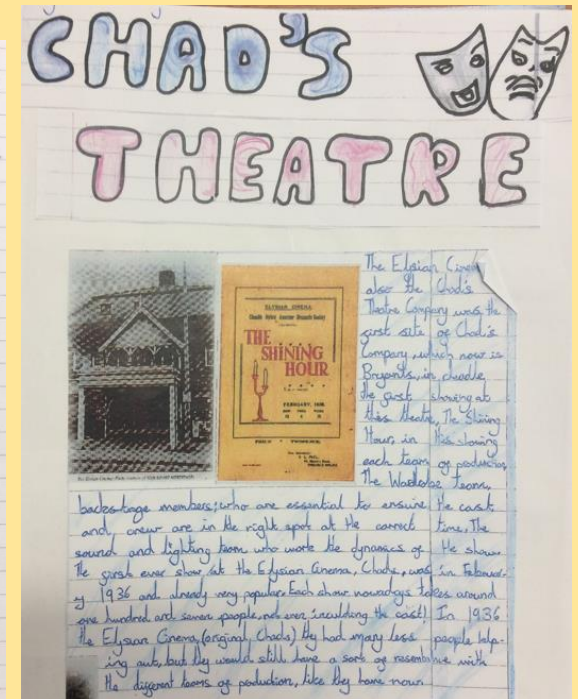 CHAD'S
THEATRE
ELYSIAN CINEMA
THE
SHINING
HOUR
FEBRUARY, 1936
PRICE TWOPENCE
The Elsian Cinema
also the Chad's
Theatre Company was the
first site of Chad's
Company, which now is
Bryants, in cheadle
the first showing at
this theatre, The Shining
Hour, in this showing
each team of production
The Wardrobe team,
backstage members; who are essential to ensure the cast
and crew are in the right spot at the correct time, The
sound and lighting team who work the dynamics of the show.
The first ever show at the Elysian Cinema, Chads, was in Februar-
y 1936 and already very popular. Each show nowadays takes around
one hundred and seven people, not even inculding the cast! In 1936
the Elysian Cinema, (original Chads) they had many less people help-
ing out, but they would still have a sort of resemblence with
the different teams of production, like they have now